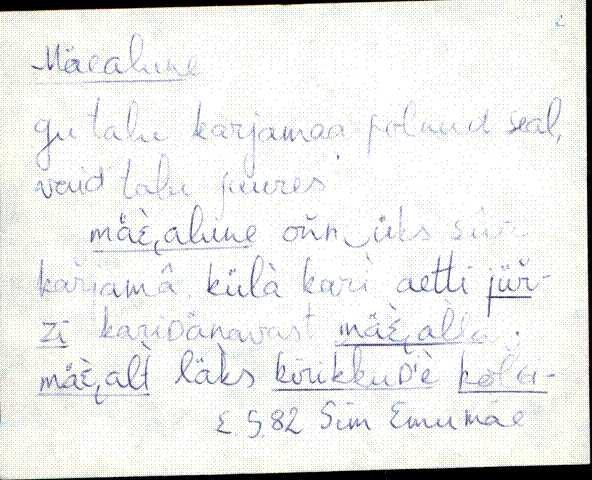 2
Mäealune
gu talu karjamaa polnud seal,
vaid talu juures.
mäè̬alune oñn üks sūr
kaŕjamā. külà kari aetti jür̆-
zi kariDänavast mäè̬alla.
mäè̬alt läks kirikkuD'è põlu-
E. S. 82 Sim Emumäe